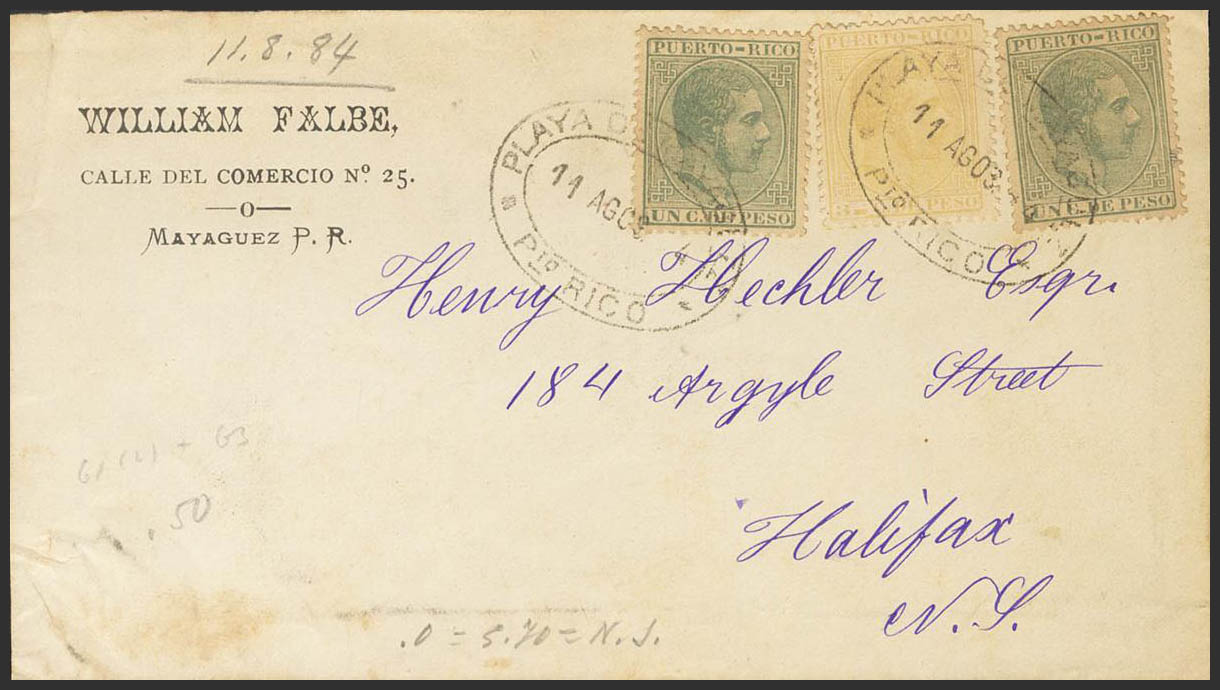 11.8.84
WILLIAM FALBE,
CALLE DEL COMERCIO Nº 25.
—O—
MAYAGUEZ P. R.
PUERTO-RICO
UN C. DE PESO
PUERTO-RICO
PESO
PUERTO-RICO
UN C. DE PESO
PLAYA
11 AGOS
Pto RICO
PLAYA
11 AGOS
Pto RICO
Henry Hechler Esqr.
184 Argyle Street
Halifax
N.S.
61 (2) + 63
.50